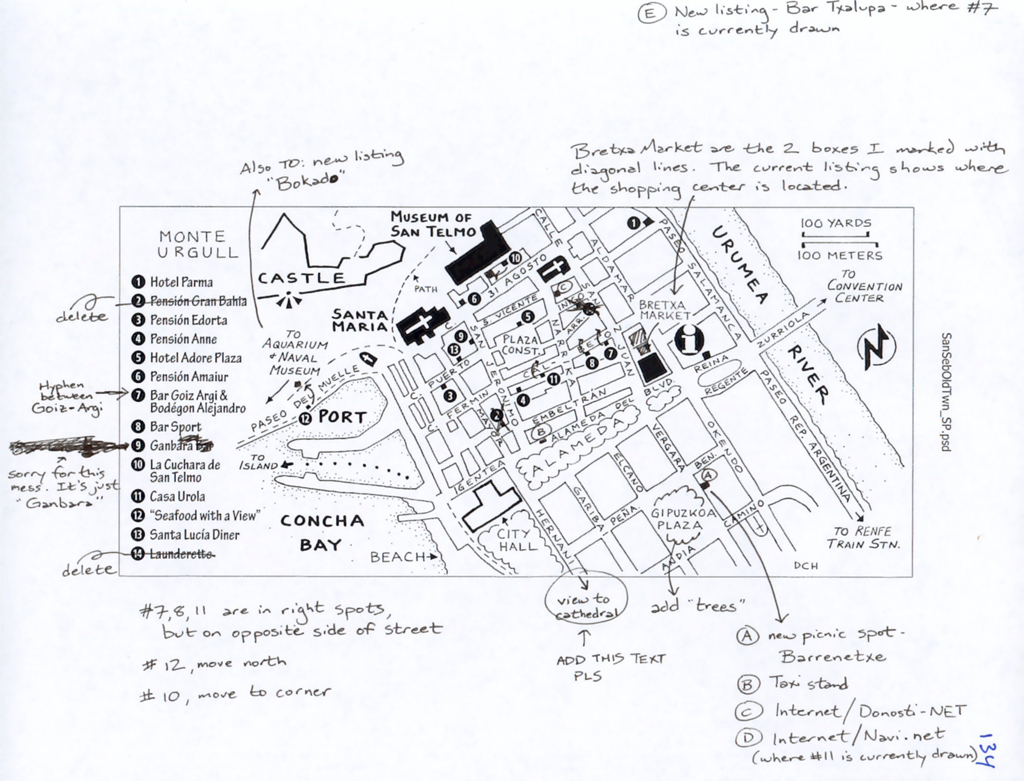 (E) New listing - Bar Txalupa - where #7
is currently drawn
Bretxa Market are the 2 boxes I marked with
diagonal lines. The current listing shows where
the shopping center is located.
Also TO: new listing
"Bokado"
MONTE
URGULL
CASTLE
MUSEUM OF
SAN TELMO
PATH
SANTA
MARIA
TO
AQUARIUM
& NAVAL
MUSEUM
PASEO DEL MUELLE
PORT
TO
ISLAND
CONCHA
BAY
BEACH
CITY
HALL
CALLE
31 AGOSTO
S. VICENTE
PLAZA
CONST.
NARRIKA
SAN JERONIMO
PUERTO
FERMIN
MAYOR
IGENTEA
EMBELTRÁN
ALAMEDA DEL BLVD.
ALAMEDA
SAN JUAN
ALDAMAR
BRETXA
MARKET
i
REINA
REGENTE
PASEO SALAMANCA
URUMEA
RIVER
ZURRIOLA
PASEO REP. ARGENTINA
100 YARDS
100 METERS
TO
CONVENTION
CENTER
N
OKENDO
VERGARA
BEN.
ELCANO
PEÑA
GARIBAY
HERNANI
GIPUZKOA
PLAZA
ANDIA
CAMINO
TO RENFE
TRAIN STN.
DCH
SanSebOldTwn_SP.psd
1 Hotel Parma
2 Pensión Gran Bahía
3 Pensión Edorta
4 Pensión Anne
5 Hotel Adore Plaza
6 Pensión Amaiur
7 Bar Goiz Argi &
Bodégon Alejandro
8 Bar Sport
9 Ganbara
10 La Cuchara de
San Telmo
11 Casa Urola
12 "Seafood with a View"
13 Santa Lucía Diner
14 Launderette
delete
Hyphen
between
Goiz-Argi
sorry for this
mess. It's just
"Ganbara"
delete
#7,8,11 are in right spots,
but on opposite side of street
#12, move north
#10, move to corner
view to
cathedral
ADD THIS TEXT
PLS
add "trees"
(A) new picnic spot -
Barrenetxe
(B) Taxi stand
(C) Internet/Donosti-NET
(D) Internet/Navi.net
(where #11 is currently drawn)
134